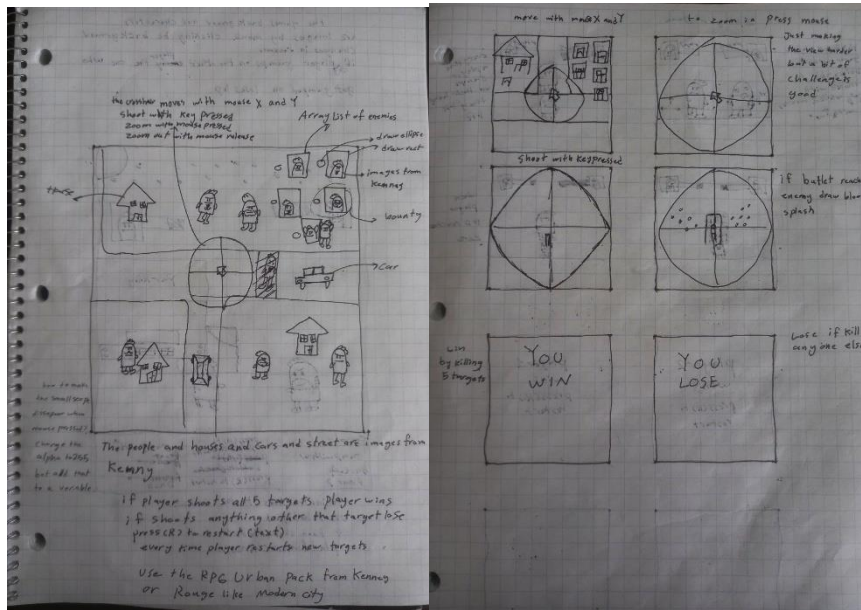 the number moves with mouse X and Y
shoot with key pressed
zoom with mouse pressed
zoom out with mouse release
Array list of enemies
draw ellipse
draw rect
images from
Kenney
bounty
House
Car
how to make
the small scope
disappear when
mouse pressed?
change the
alpha
but add that
to a variable
The people and houses and cars and street are images from
Kenney
if player shoots all 5 targets player wins
if shoots anything other that target lose
press (R) to restart (text)
every time player restarts new targets
use the RPG Urban Pack from Kenney
or Rouge like Modern city
move with mouse X and Y
to zoom in press mouse
Just making
the view harder
but a bit of
challenge is
good
Shoot with keypressed
if bullet reach
enemy draw bloo
splash
win
by killing
5 targets
YOU
WIN
YOU
LOSE
Lose if kill
anyone else